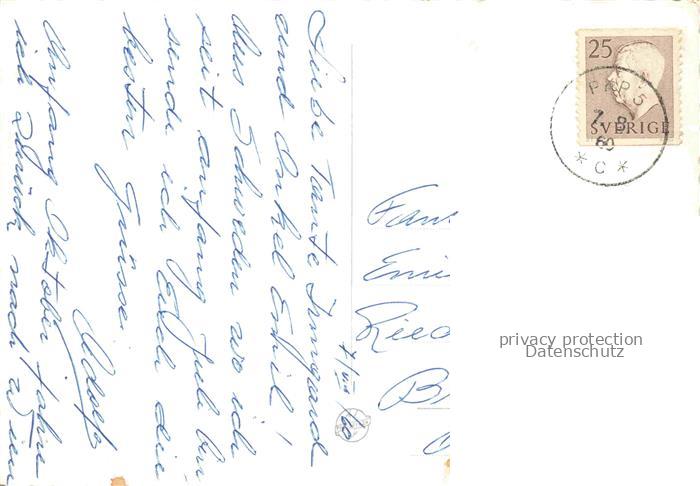 Liebe Tante Irmgard
und Onkel Emil!
Aus Schweden wo ich
seit anfang Juli bin
sende ich Euch die
besten Grüsse.
Adolf
Anfang Oktober fahre
ich Zurück nach Wien
7/VIII/60
Fam
Emi
Ried
B
25
SVERIGE
PKP 5
7. 8
60
* C *
privacy protection
Datenschutz